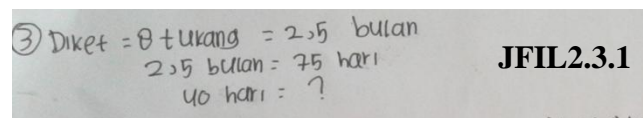 ③ Diket = 8 tukang = 2,5 bulan
2,5 bulan = 75 hari
40 hari = ?
JFIL2.3.1